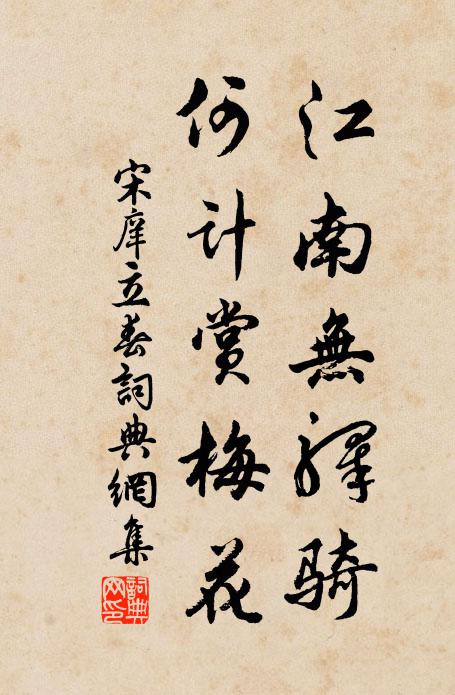 江南無驛騎
何計賞梅花
宋庠立春詞典網集
詞典網印